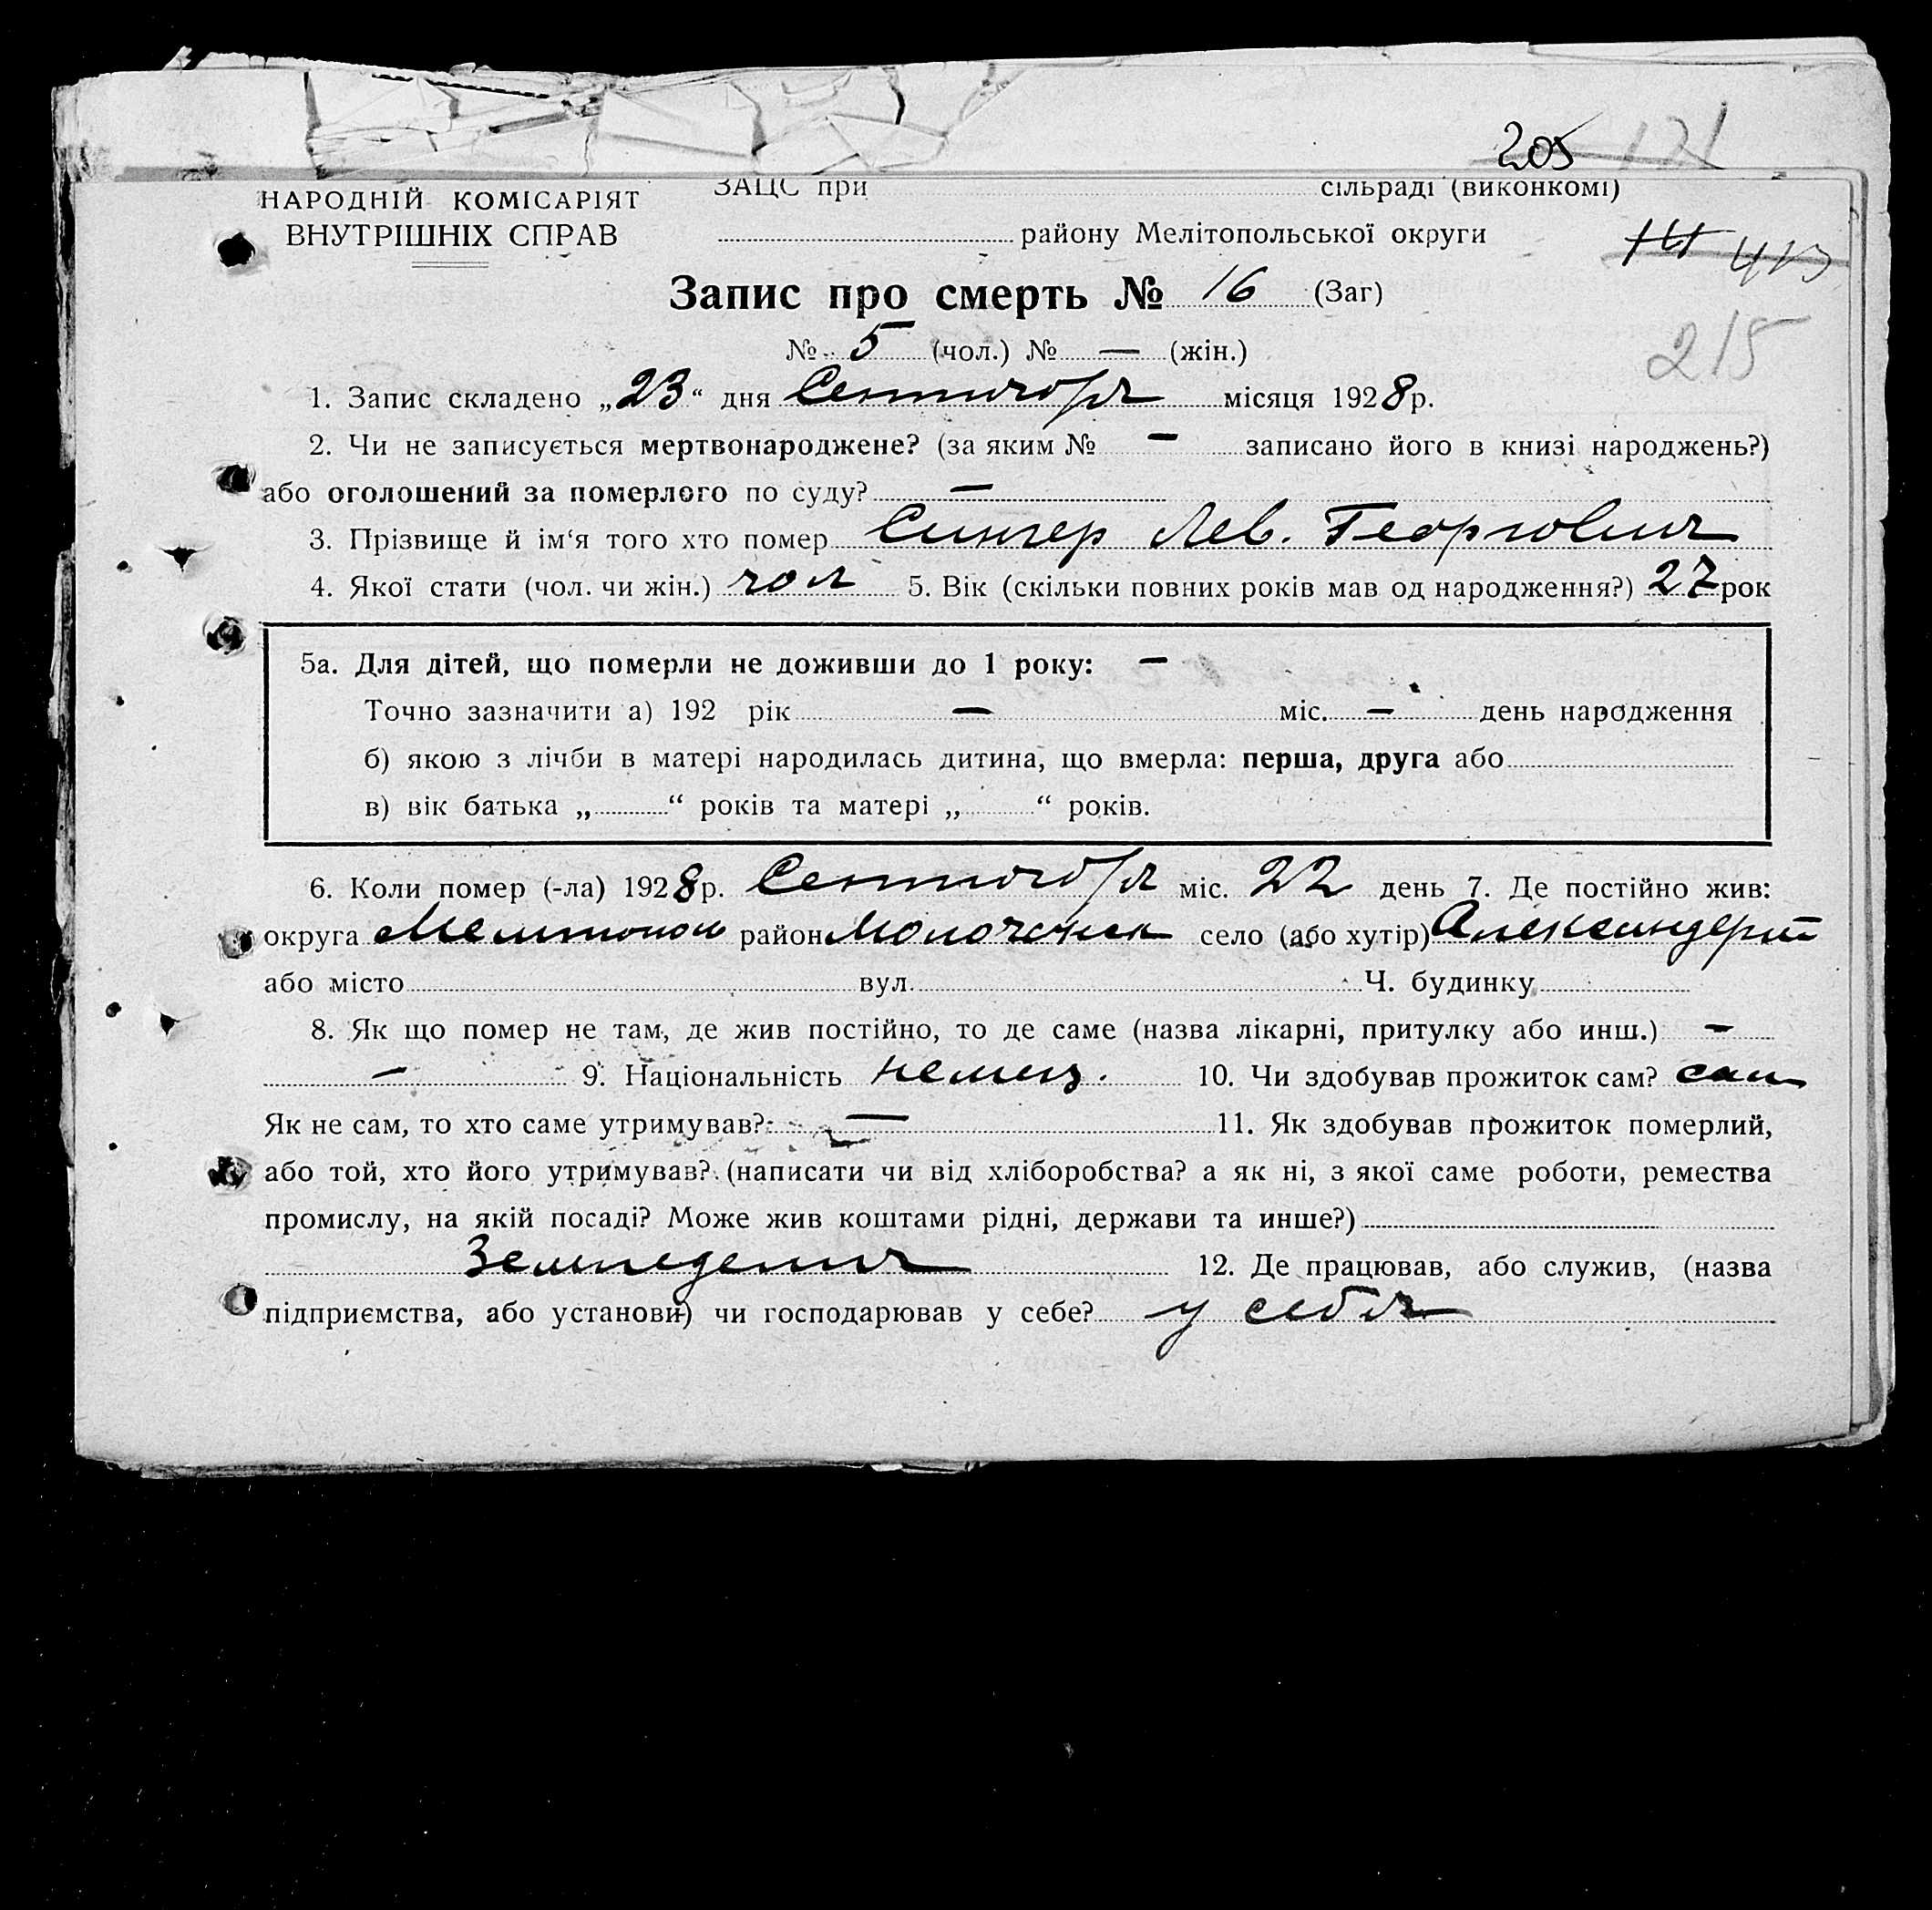 205 121
НАРОДНІЙ КОМІСАРІЯТ ЗАЦС при сільраді (виконкомі)
ВНУТРІШНІХ СПРАВ району Мелітопольської округи
Запис про смерть № 16 (Заг)
215
№ 5 (чол.) № — (жін.)
1. Запис складено „23“ дня Сентября місяця 1928 р.
2. Чи не записується мертвонароджене? (за яким № — записано його в книзі народжень?)
або оголошений за померлого по суду? —
3. Прізвище й ім‘я того хто помер Сингер Лев. Георгович
4. Якої стати (чол. чи жін.) чол 5. Вік (скільки повних років мав од народження?) 27 рок
5а. Для дітей, що померли не доживши до 1 року: —
Точно зазначити а) 192 рік — міс. — день народження
б) якою з лічби в матері народилась дитина, що вмерла: перша, друга або
в) вік батька „ “ років та матері „ “ років.
6. Коли помер (-ла) 1928 р. Сентября міс. 22 день 7. Де постійно жив:
округа Мелитопол район Молочанск село (або хутір)
або місто вул. Ч. будинку
8. Як що помер не там, де жив постійно, то де саме (назва лікарні, притулку або инш.) —
— 9. Національність немец. 10. Чи здобував прожиток сам? сам
Як не сам, то хто саме утримував? — 11. Як здобував прожиток померлий,
або той, хто його утримував? (написати чи від хліборобства? а як ні, з якої саме роботи, ремества
промислу, на якій посаді? Може жив коштами рідні, держави та инше?)
Земледелия 12. Де працював, або служив, (назва
підприємства, або установи) чи господарював у себе? у себя